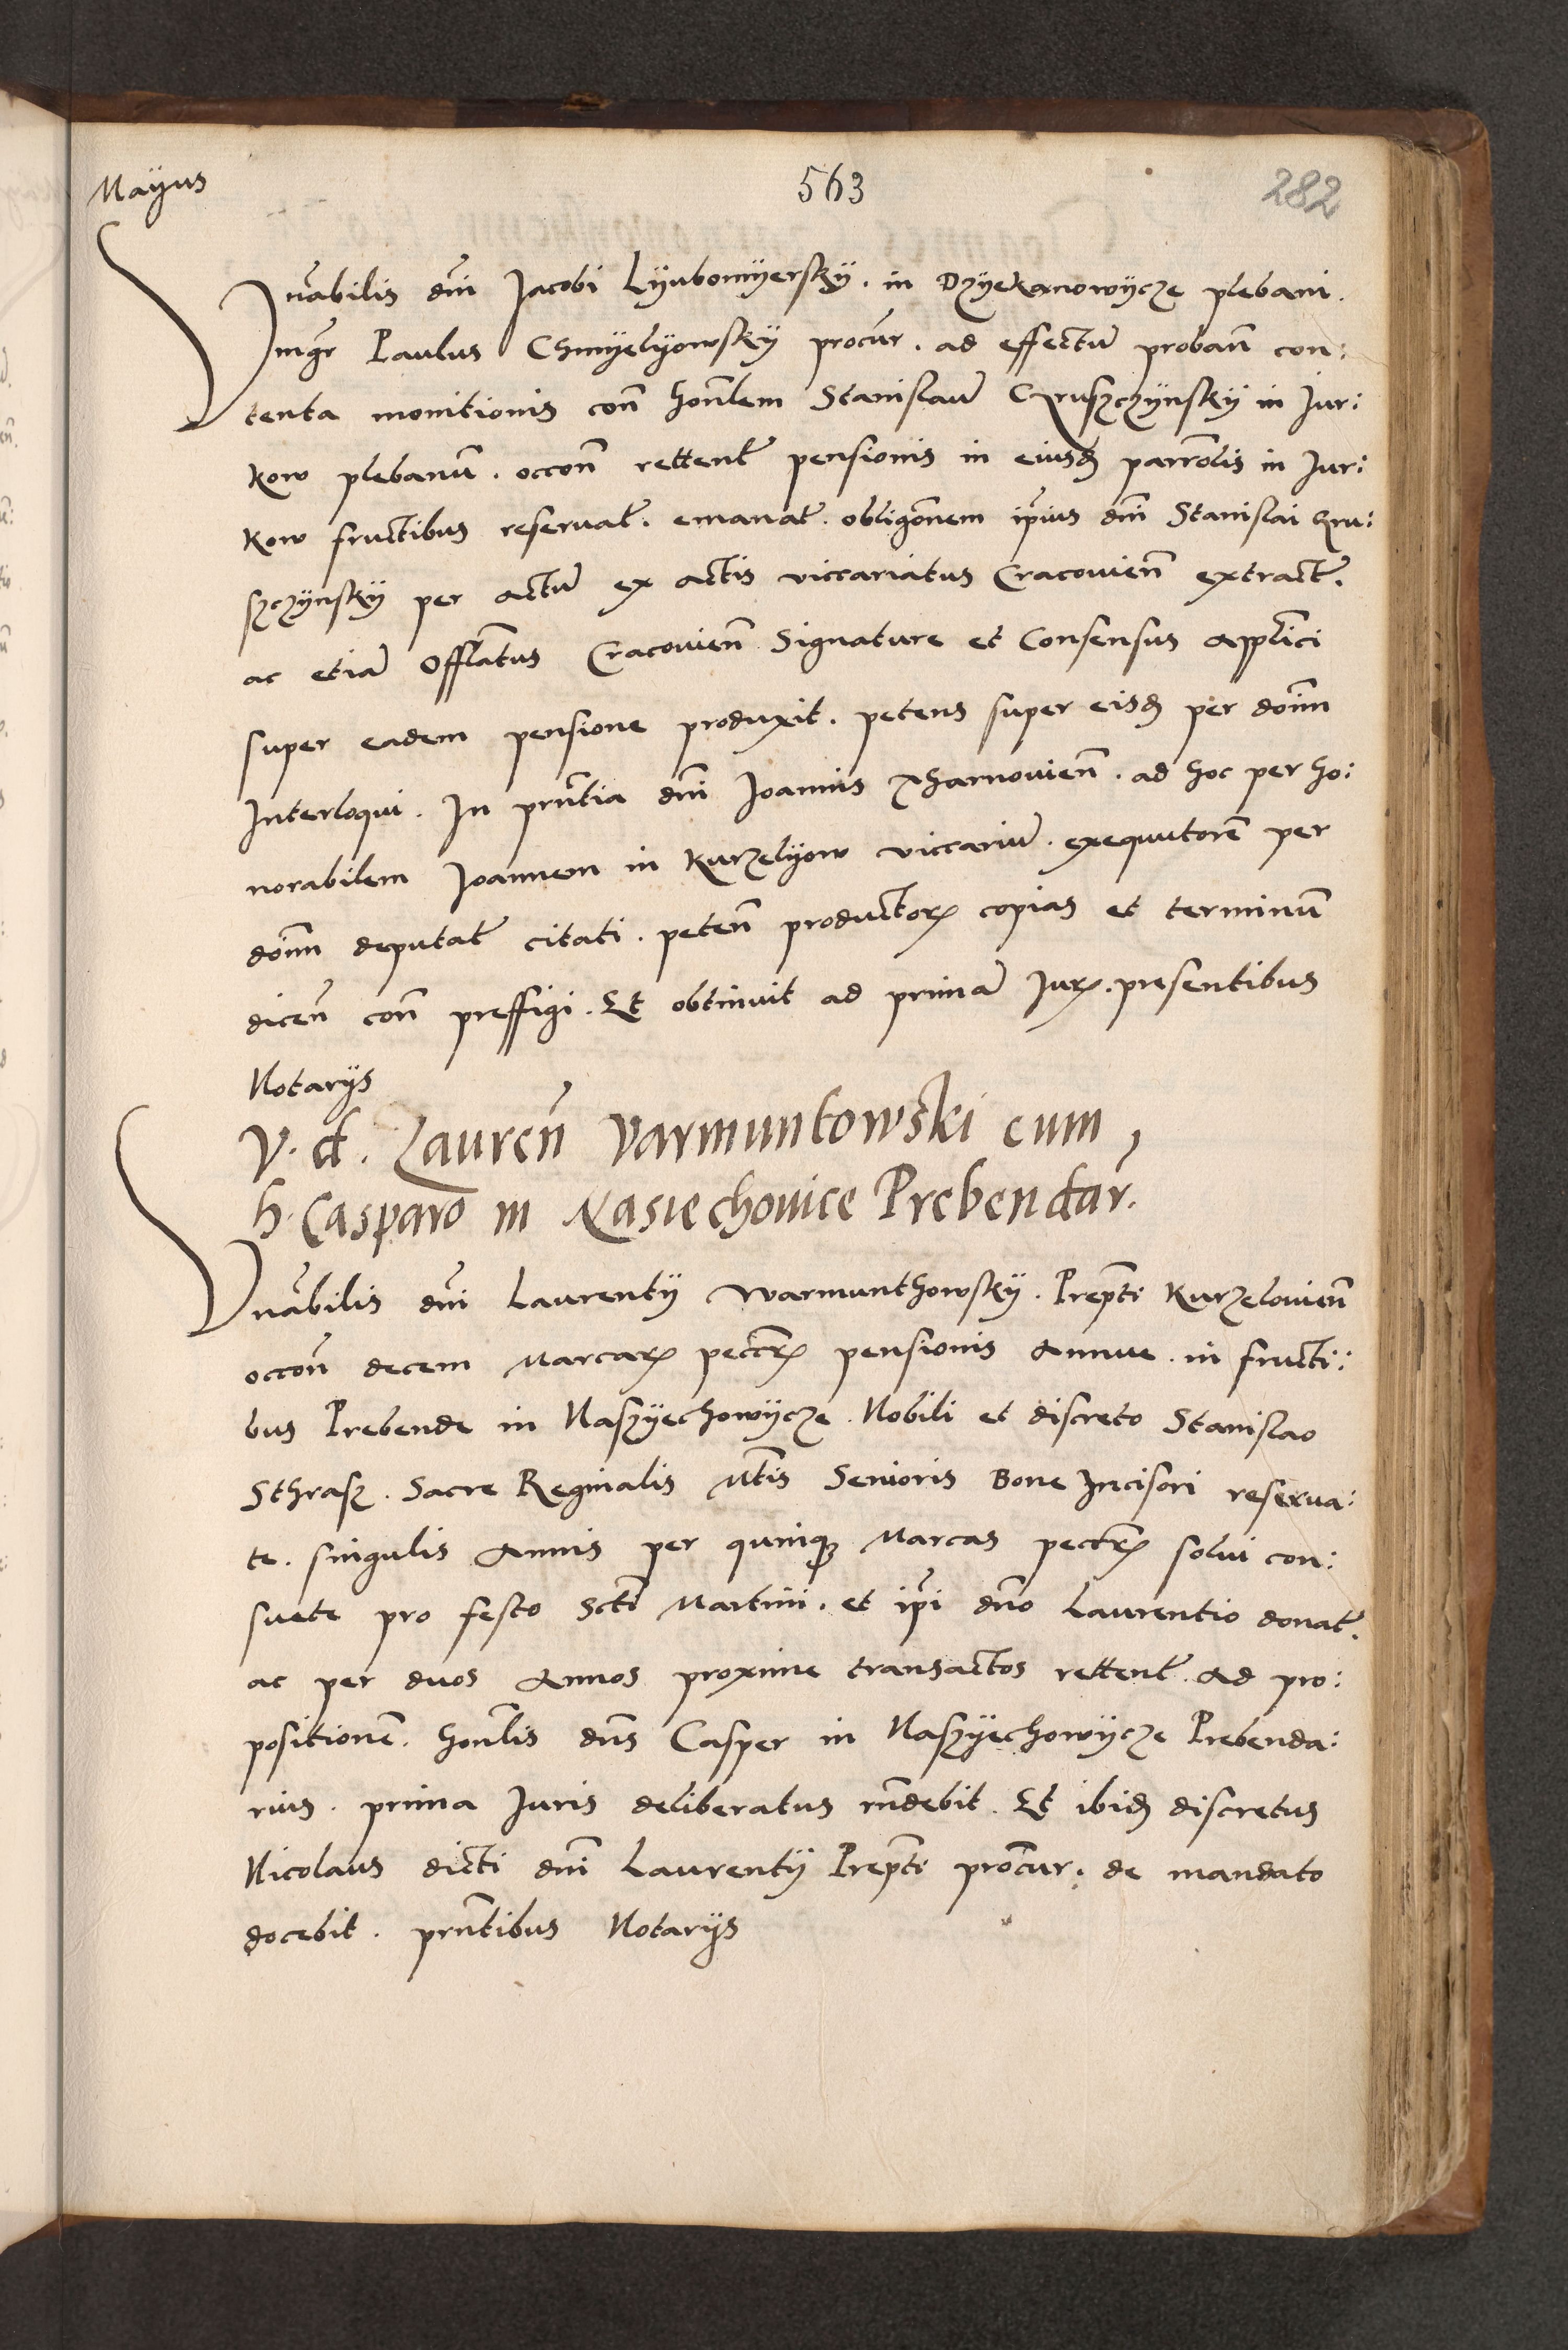 Mayus
563
282
Vnābilis dnī Jacobi Lyubomyersky. in Dzyekanowycze plebani.
mgr̄ Paulus Chmyelyowsky procur̄. ad effectū probań con:
tenta monitionis coń honlem Stanislaū Cruszczynsky in Jur:
kow plebanū. occoń rettent̄ pensionis in eiusd parrolis in Jur:
kow fructibus reservat̄. emanat̄. obligōnem ipīus dnī Stanislai Cru:
szczynsky per actū ex actis viccariatus Cracovień extract̄.
ac etiā Offlātus Cracovień Signature et Consensus Applīci
super eadem pensione produxit. petens super eisd per doīm
Interloqui. In prn̄tia dnī Joannis Tharnovień. ad hoc per ho:
norabilem Joannem in Kurzelyow viccariū. exequutorē per
doīm deputat̄ citati. peteń productor copias et terminū
diceń coń preffigi. Et obtinuit ad primā Jur. presentibus
Notarijs
V. d. Laureń Varmuntowski cum
h. Casparo in Nasiechovice Prebendar̄.
Vnābilis dnī Laurentij Warmunthowsky. Prepti Kurzelovień
occoń decem Marcar pecc̄r pensionis Annue. in fructi:
bus Prebende in Naszyechowycze. Nobili et discreto Stanislao
Sthrasz. Sacre Reginalis Mtīs Senioris Bone Incisori reserva:
te. singulis Annis per quinq Marcas pecc̄r solvi con:
suete pro festo Sctī Martini. et ipī dnō Laurentio donat̄.
ac per duos Annos proxime transactos rettent̄. Ad pro:
positionē. honlis dns Casper in Naszyechowycze Prebenda:
rius. prima Juris deliberatus rn̄debit. Et ibid discretus
Nicolaus dicti dnī Laurentij Prepti procur. de mandato
docebit. prn̄tibus Notarijs